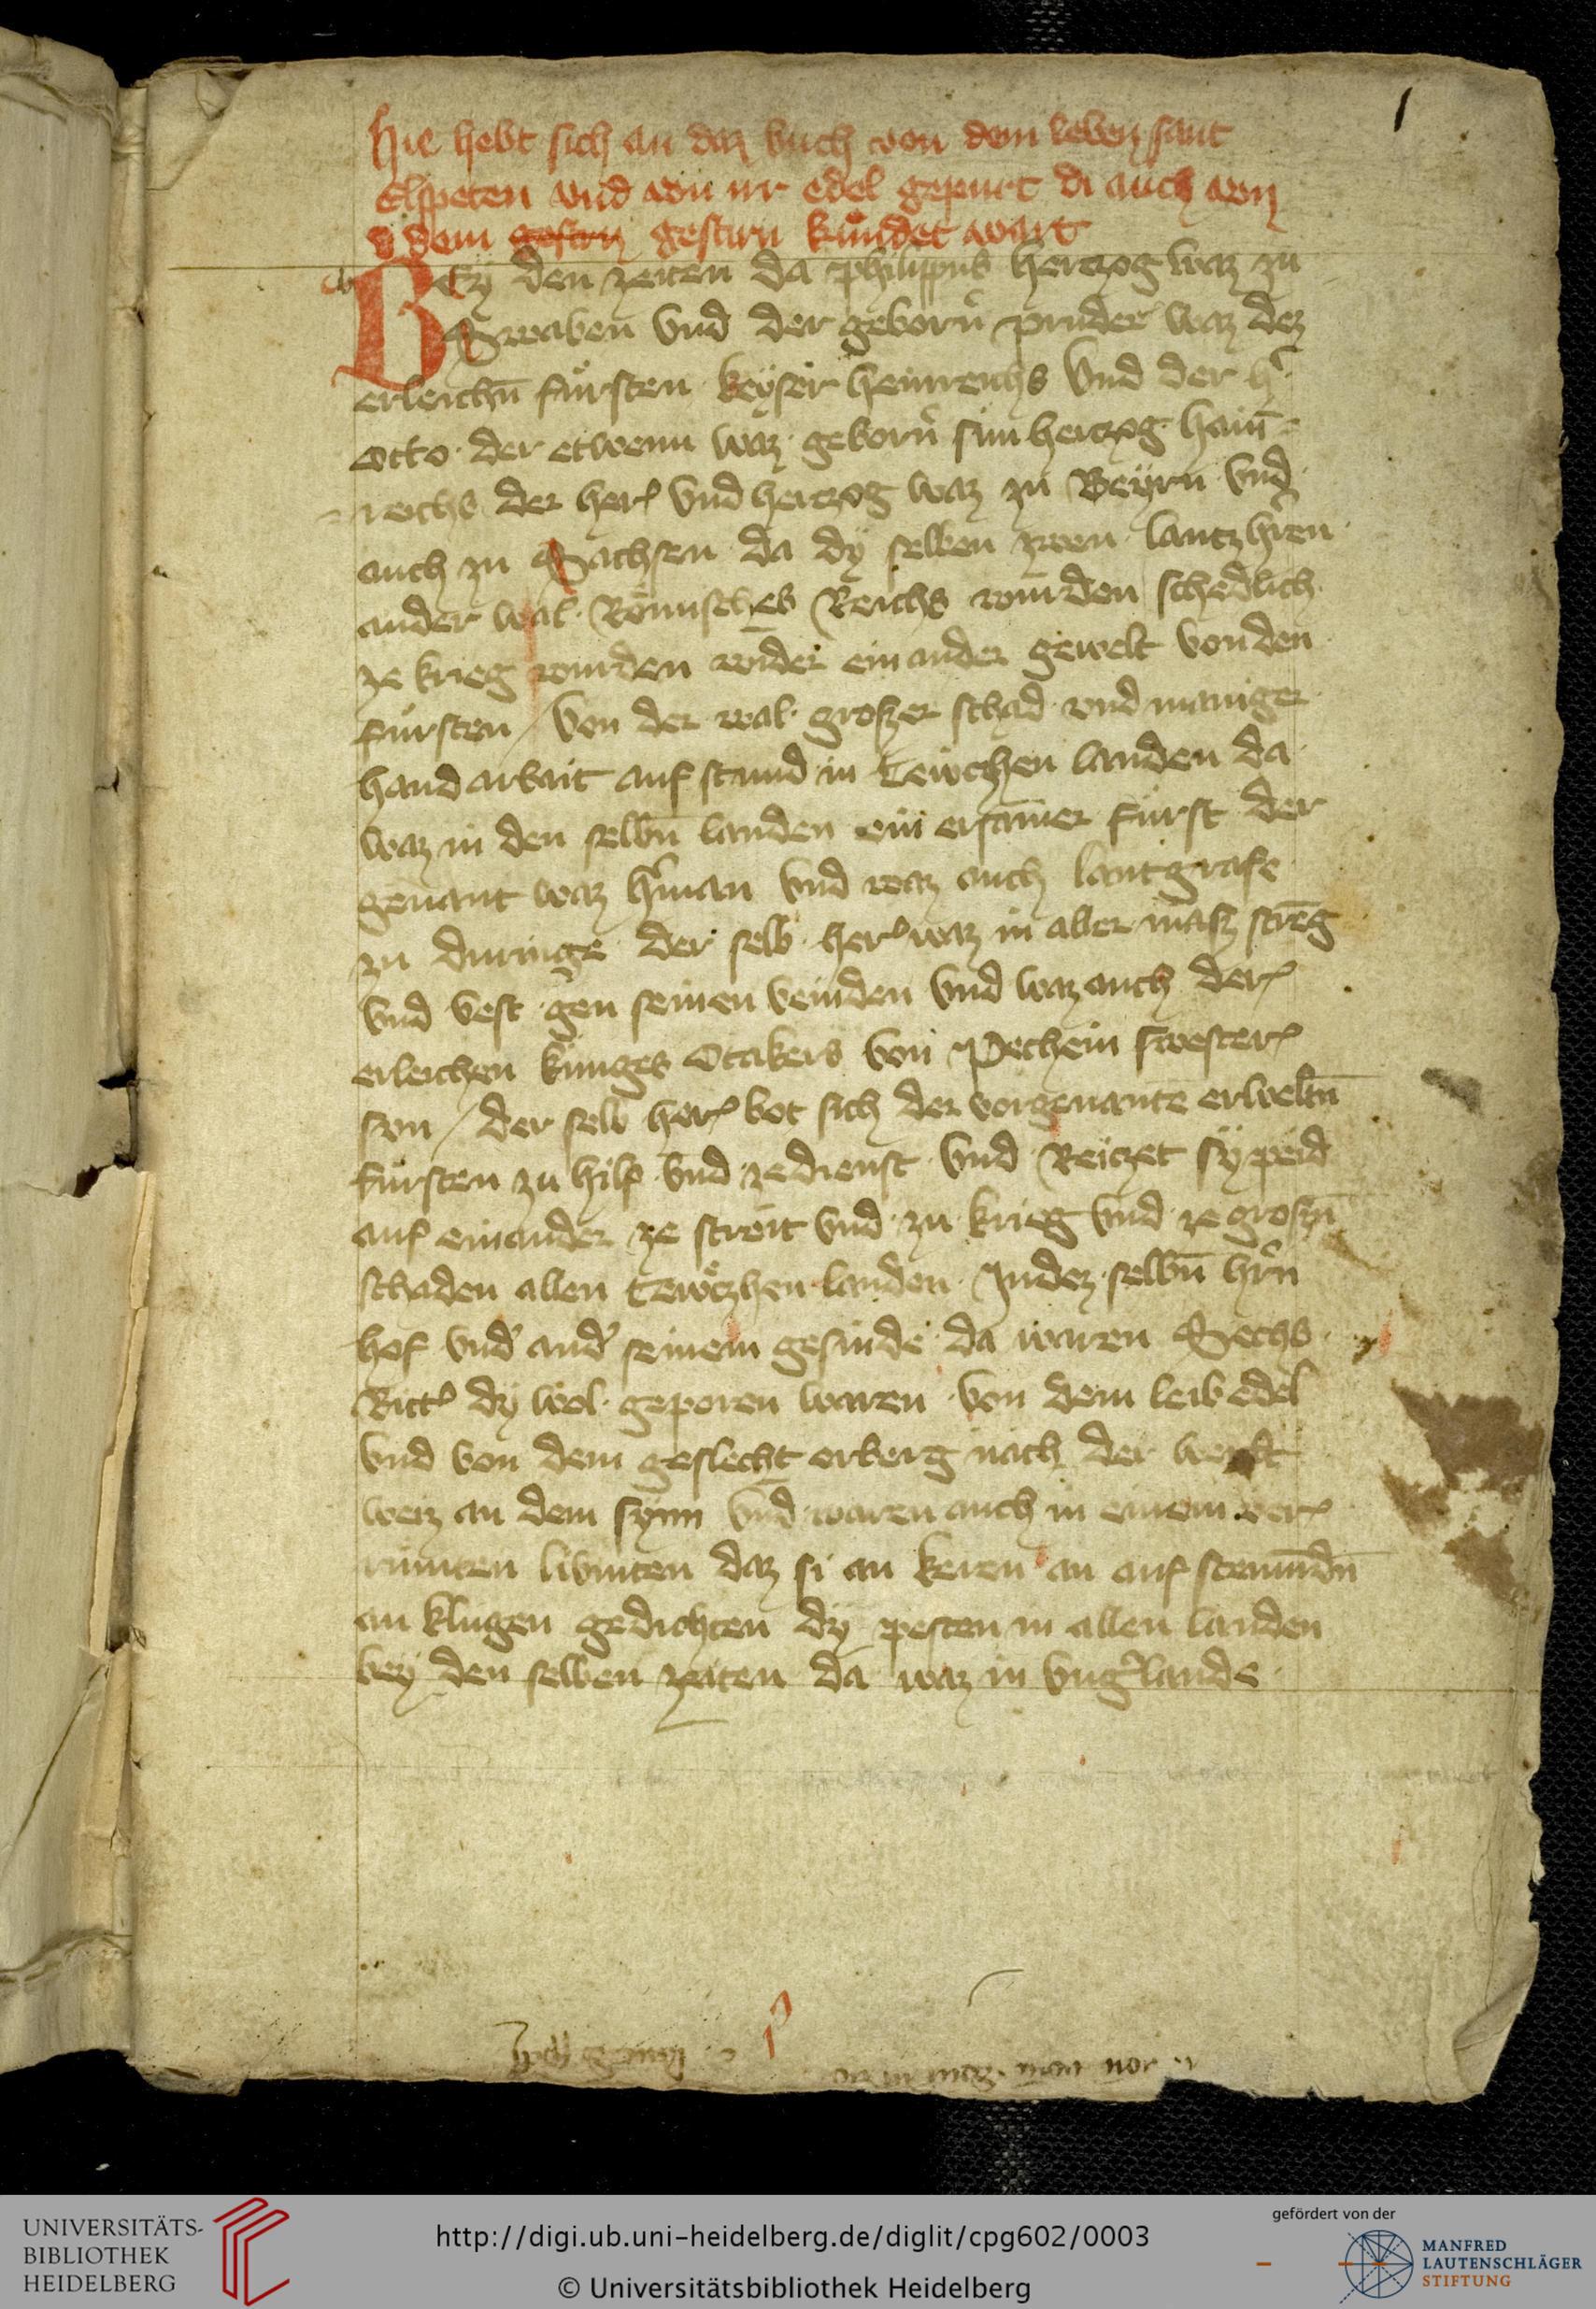 1
Hie hebt sich an daz buch von dem leben sant
Elspeten vnd von irr edel gepurt di auch von
d dem gestirn kündet wart
BEy den zeiten da philippus hertzog waz zu
Swaben vnd der geborn pruder waz dez
erleichn̄ fürsten keyser heinreichs vnd der h'
Otto der etwenn waz geborn sun hertzog hain=
=reichs der her vnd hertzog waz zu Beyrn vnd
auch zu Sachsen da dÿ selben zwen lantzh'ren
ander wal Römisches Reichs wurden schedlich
ze krieg wurden wider ein ander gewelt von den
fürsten / von der wal grozzer schad vnd maniger
hand arbait auf stund in tewchen landen da
waz in den selbn̄ landen ein ersamer fürst der
genant waz h'man vnd waz auch lantgrafe
zu duringe der selb her waz in aller masz streḡ
vnd vest gen seinen veinden vnd waz auch der
erleichen küniges Otakers von Pechein swester
svn / der selb her bot sich der vorgenante erweltn̄
fürsten zu hilf vnd ze dienst vnd Reitzet sÿ peid
auf einander ze streit vnd zu krieg vnd ze groszn̄
schaden allen tewtzhen landen In dez selbn̄ h'rn
hof vnd' and' seinem gesinde da waren Sechs
Ritt' dÿ wol geporen waren von dem leib edel
vnd von dem geslecht erberg nach der
weiz an dem synn vnd waren auch in einem ver
rümten daz si an keren an auf
an klugen gedichten dÿ pesten in allen landen
bey den selben zeiten da waz in vng'lande
UNIVERSITÄTS-
BIBLIOTHEK
HEIDELBERG
http://digi.ub.uni-heidelberg.de/diglit/cpg602/0003
© Universitätsbibliothek Heidelberg
gefördert von der
MANFRED
LAUTENSCHLÄGER
STIFTUNG